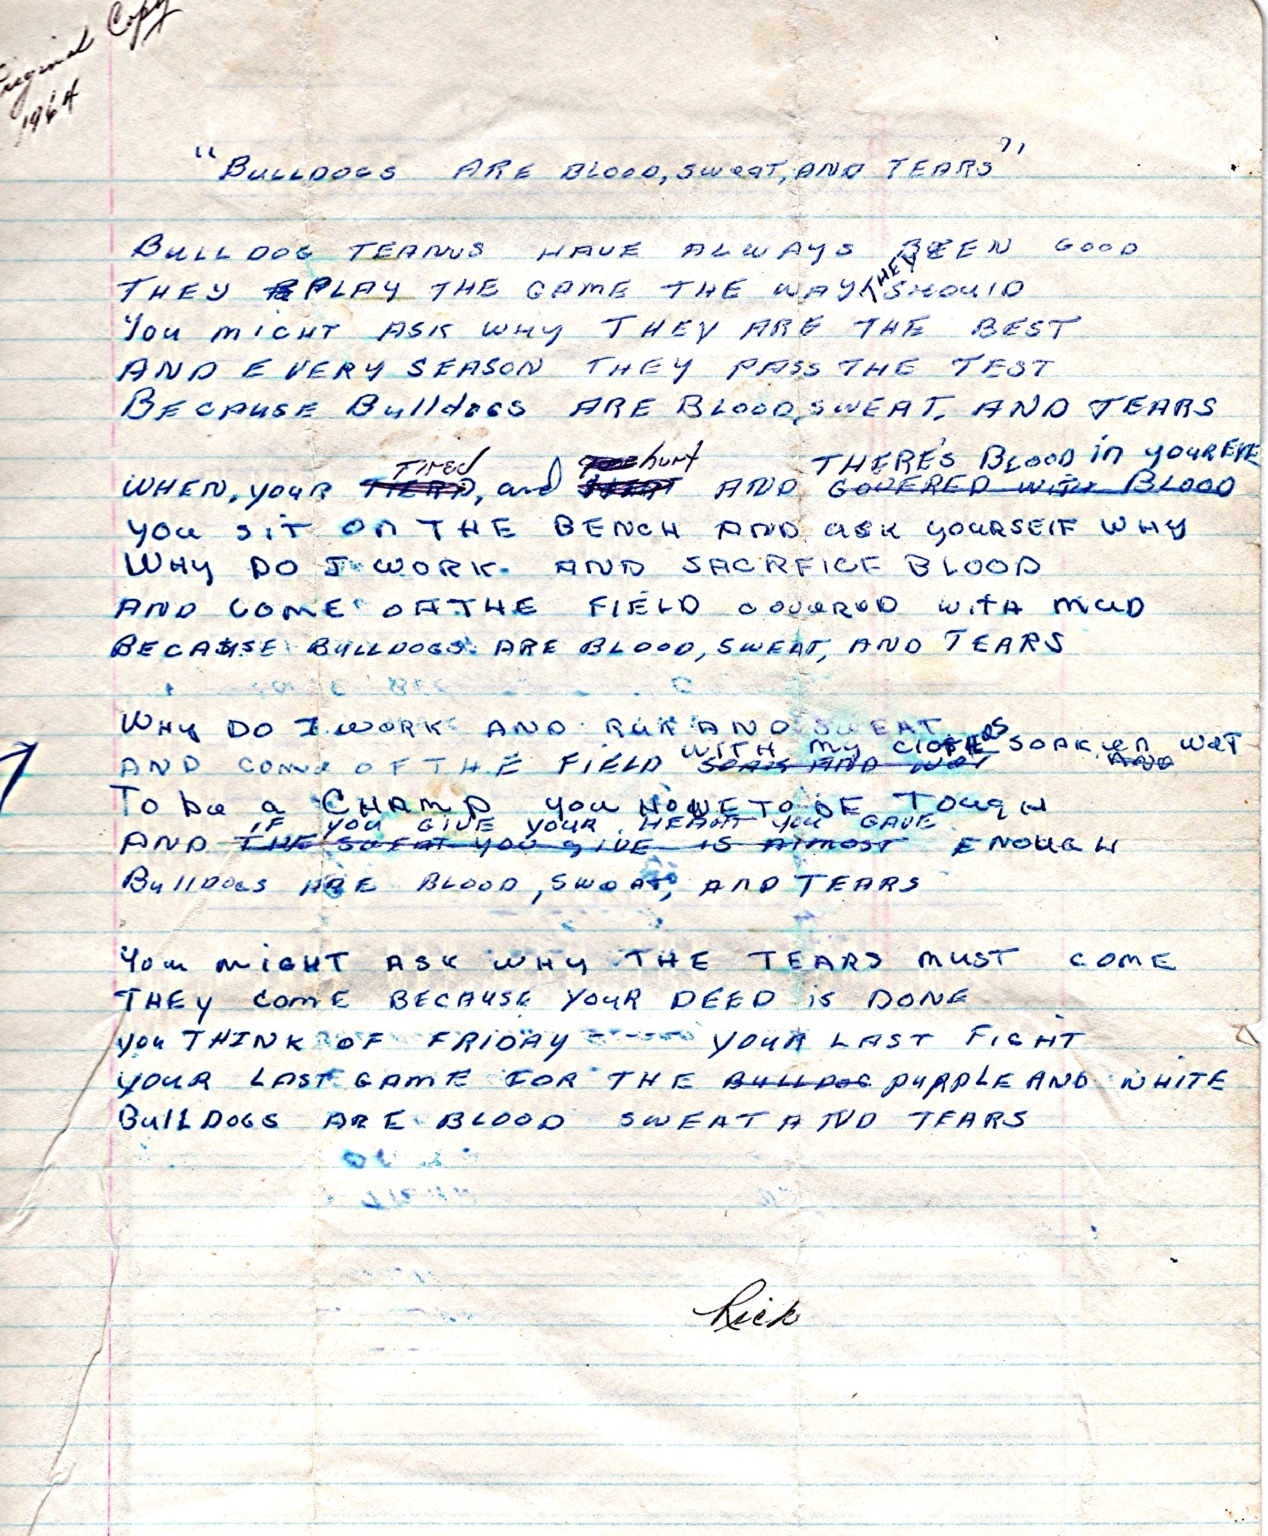 Original Copy
1964
"BULLDOGS ARE BLOOD, SWEAT, AND TEARS"
BULLDOG TEAMS HAVE ALWAYS BEEN GOOD
THEY PLAY THE GAME THE WAY THEY SHOULD
You might ASK WHY THEY ARE THE BEST
AND EVERY SEASON THEY PASS THE TEST
BECAUSE BullDOGS ARE BLOOD, SWEAT, AND TEARS
Tired hurt THERE'S BLOOD in YOUR EYE
WHEN, YOUR TIERD, and AND COVERED WITH BLOOD
YOU SIT ON THE BENCH AND ASK YOURSELF WHY
WHY DO I WORK AND SACRFICE BLOOD
AND COME OF THE FIELD COVERED WITH MUD
BECAUSE BULLDOGS ARE BLOOD, SWEAT, AND TEARS
WHY DO I WORK AND RUN AND SWEAT
WITH MY CLOTHES SOAKEN WET
AND COME OF THE FIELD SOAK AND WET AND
To be a CHAMP YOU HAVE TO BE TOUGH
IF YOU GIVE YOUR HEART YOU GAVE
AND THE SWEAT YOU GIVE IS AlMOST ENOUGH
BullDOGS ARE BLOOD, SWEAT, AND TEARS
You MIGHT ASK WHY THE TEARS MUST COME
THEY COME BECAUSE YOUR DEED is DONE
YOU THINK OF FRIDAY ------ YOUR LAST FIGHT
YOUR LAST GAME FOR THE BULLDOG PURPLE AND WHITE
BullDOGS ARE BLOOD SWEAT AND TEARS
Rick